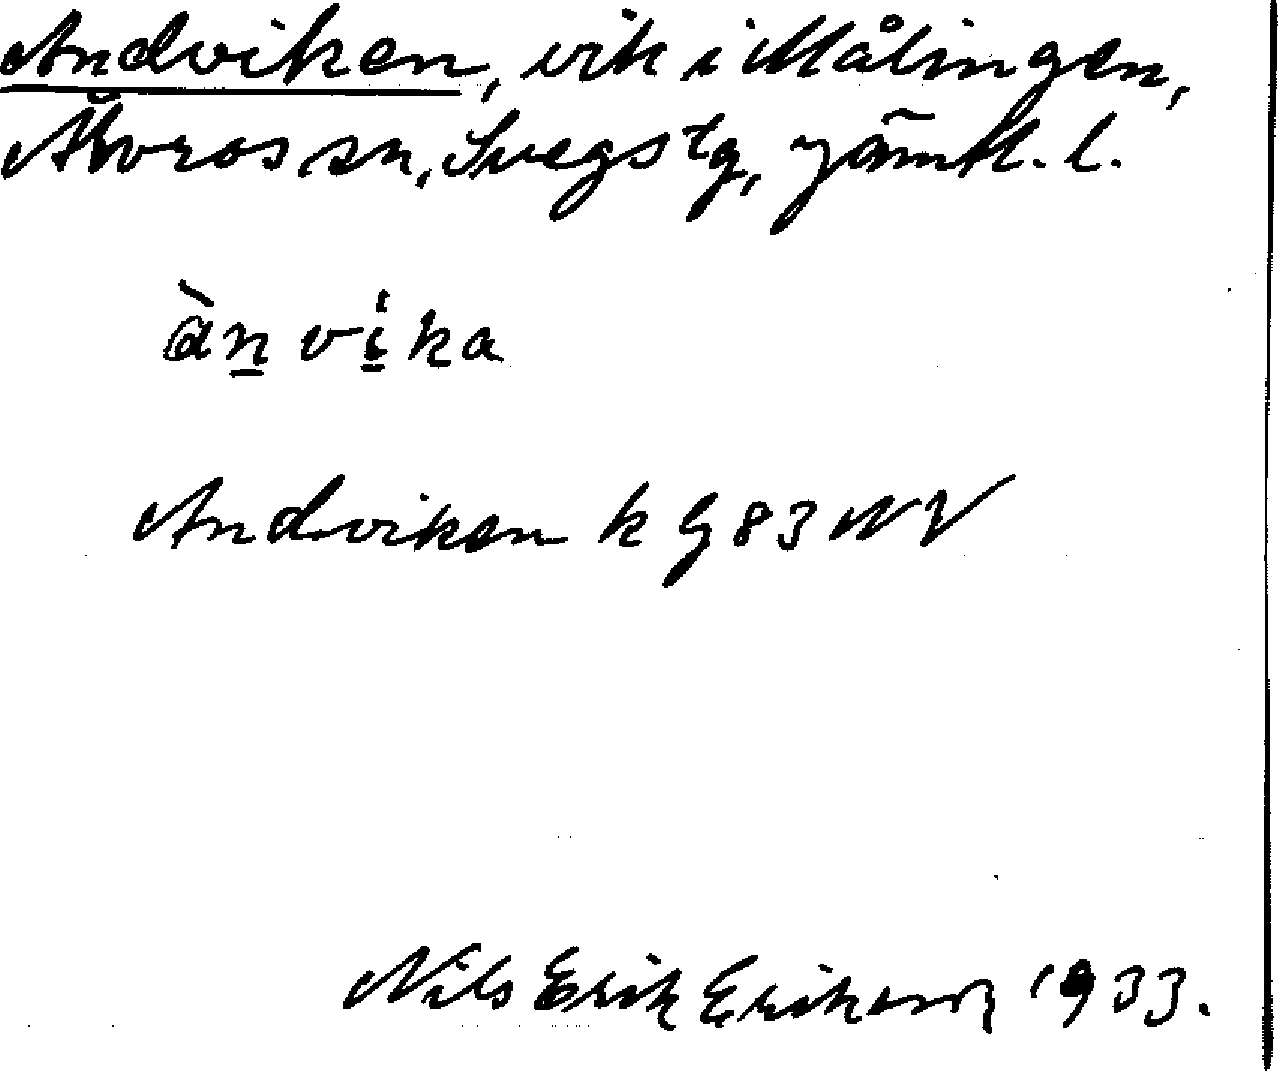 Andviken, vik i Målingen,
Älvros sn, Svegs tg, Jämtl. l.
ànvika
Andviken k G 83 NV
Nils Erik Erikson 1933.